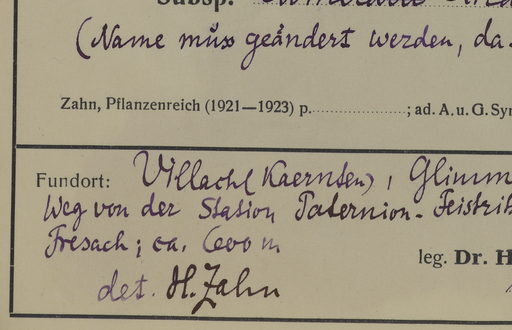 Subsp.
(Name muss geändert werden, da
Zahn, Pflanzenreich (1921—1923) p. ; ad. A. u. G. Syn
Fundort: Villach (Kaernten), Glimm
Weg von der Station Paternion-Feistrit
Fresach; ca. 600 m
leg. Dr. H
det. H. Zahn